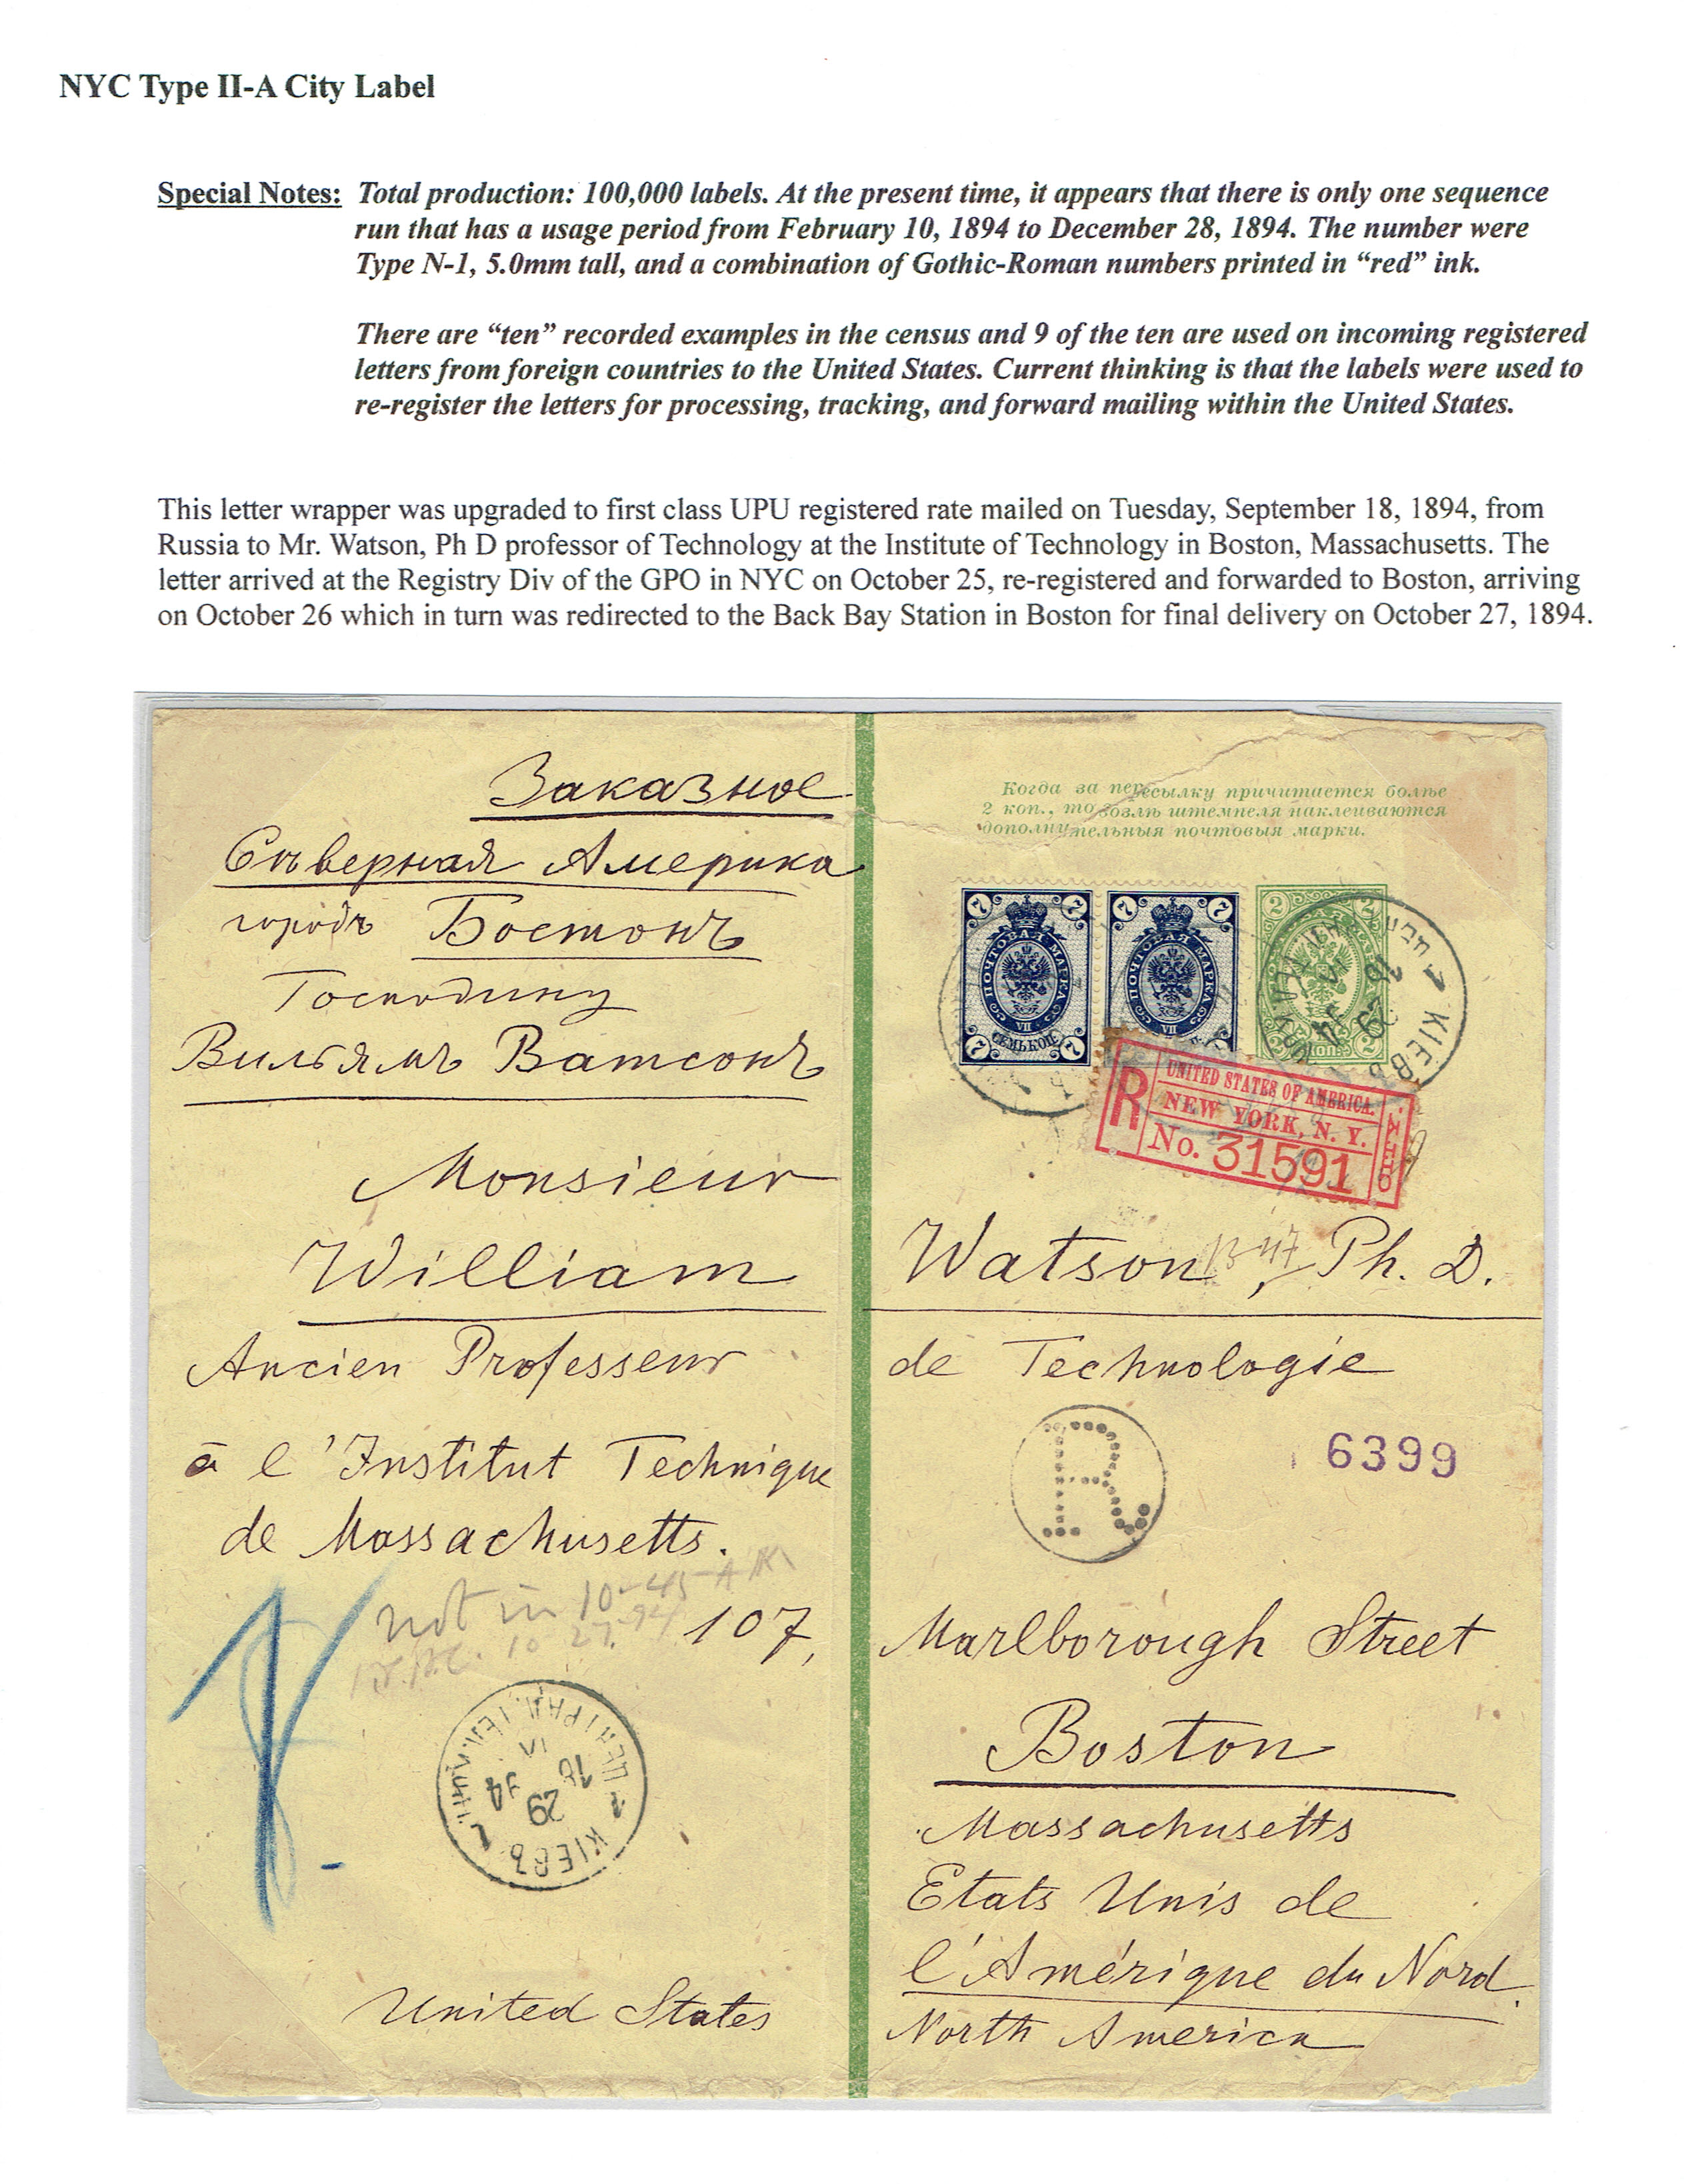 NYC Type II-A City Label
Special Notes: Total production: 100,000 labels. At the present time, it appears that there is only one sequence
run that has a usage period from February 10, 1894 to December 28, 1894. The number were
Type N-1, 5.0mm tall, and a combination of Gothic-Roman numbers printed in “red” ink.
There are “ten” recorded examples in the census and 9 of the ten are used on incoming registered
letters from foreign countries to the United States. Current thinking is that the labels were used to
re-register the letters for processing, tracking, and forward mailing within the United States.
This letter wrapper was upgraded to first class UPU registered rate mailed on Tuesday, September 18, 1894, from
Russia to Mr. Watson, Ph D professor of Technology at the Institute of Technology in Boston, Massachusetts. The
letter arrived at the Registry Div of the GPO in NYC on October 25, re-registered and forwarded to Boston, arriving
on October 26 which in turn was redirected to the Back Bay Station in Boston for final delivery on October 27, 1894.
Заказное
Сѣверная Америка
городъ Бостонъ
Господину
Вильямъ Ватсонъ
Когда за пересылку причитается болѣе
2 коп., то возлѣ штемпеля наклеиваются
дополнительныя почтовыя марки.
7 7
ПОЧТОВАЯ МАРКА
VII
СЕМЬ КОП.
7 7
7 7
ПОЧТОВАЯ МАРКА
VII
7
2 2
2 2
1 КІЕВЪ
R
UNITED STATES OF AMERICA.
NEW YORK, N. Y.
No. 31591
CITY.
Monsieur
William Watson, Ph. D.
Ancien Professeur de Technologie
à l'Institut Technique
de Massachusetts.
R
6399
not in 10-45 A
10 27 94
107, Marlborough Street
Boston
Massachusetts
Etats Unis de
l'Amérique du Nord.
United States North America
КІЕВЪ
18
29
94